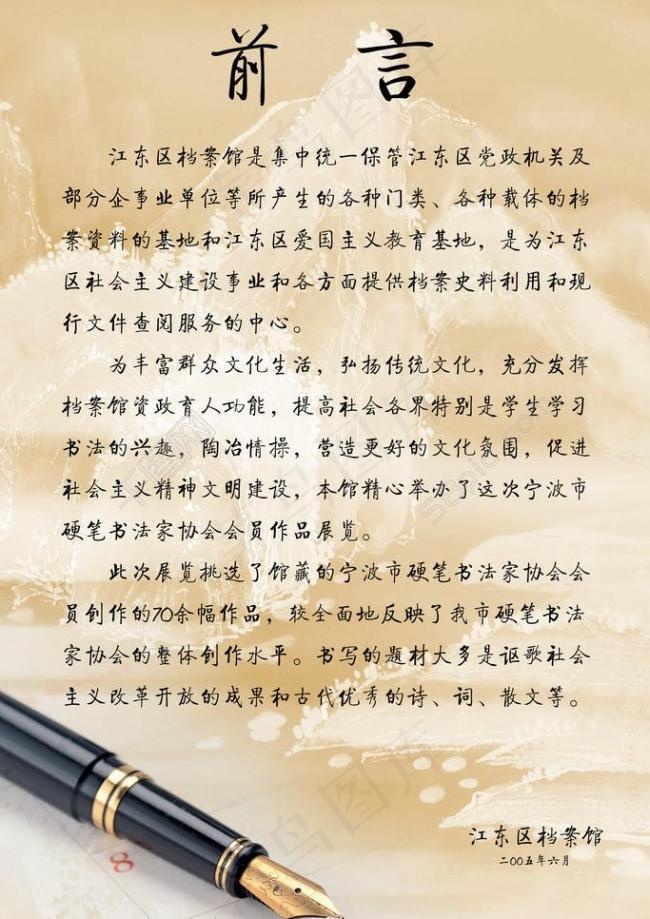 前 言
江东区档案馆是集中统一保管江东区党政机关及
部分企事业单位等所产生的各种门类、各种载体的档
案资料的基地和江东区爱国主义教育基地，是为江东
区社会主义建设事业和各方面提供档案史料利用和现
行文件查阅服务的中心。
为丰富群众文化生活，弘扬传统文化，充分发挥
档案馆资政育人功能，提高社会各界特别是学生学习
书法的兴趣，陶冶情操，营造更好的文化氛围，促进
社会主义精神文明建设，本馆精心举办了这次宁波市
硬笔书法家协会会员作品展览。
此次展览挑选了馆藏的宁波市硬笔书法家协会会
员创作的70余幅作品，较全面地反映了我市硬笔书法
家协会的整体创作水平。书写的题材大多是讴歌社会
主义改革开放的成果和古代优秀的诗、词、散文等。
8
江东区档案馆
二00五年六月